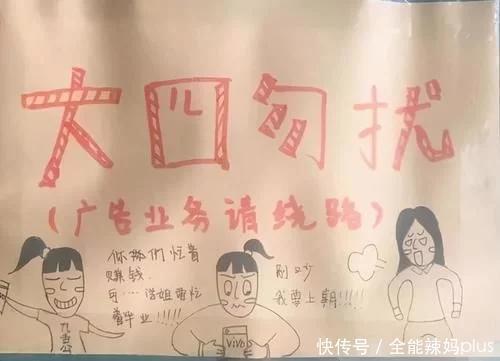 大四勿扰
(广告业务请绕路)
你们忙着
赚钱
可…浩姐需忙
着毕业!!!!
别吵
我要上期!!!!
vivo
快传号/全能辣妈plus